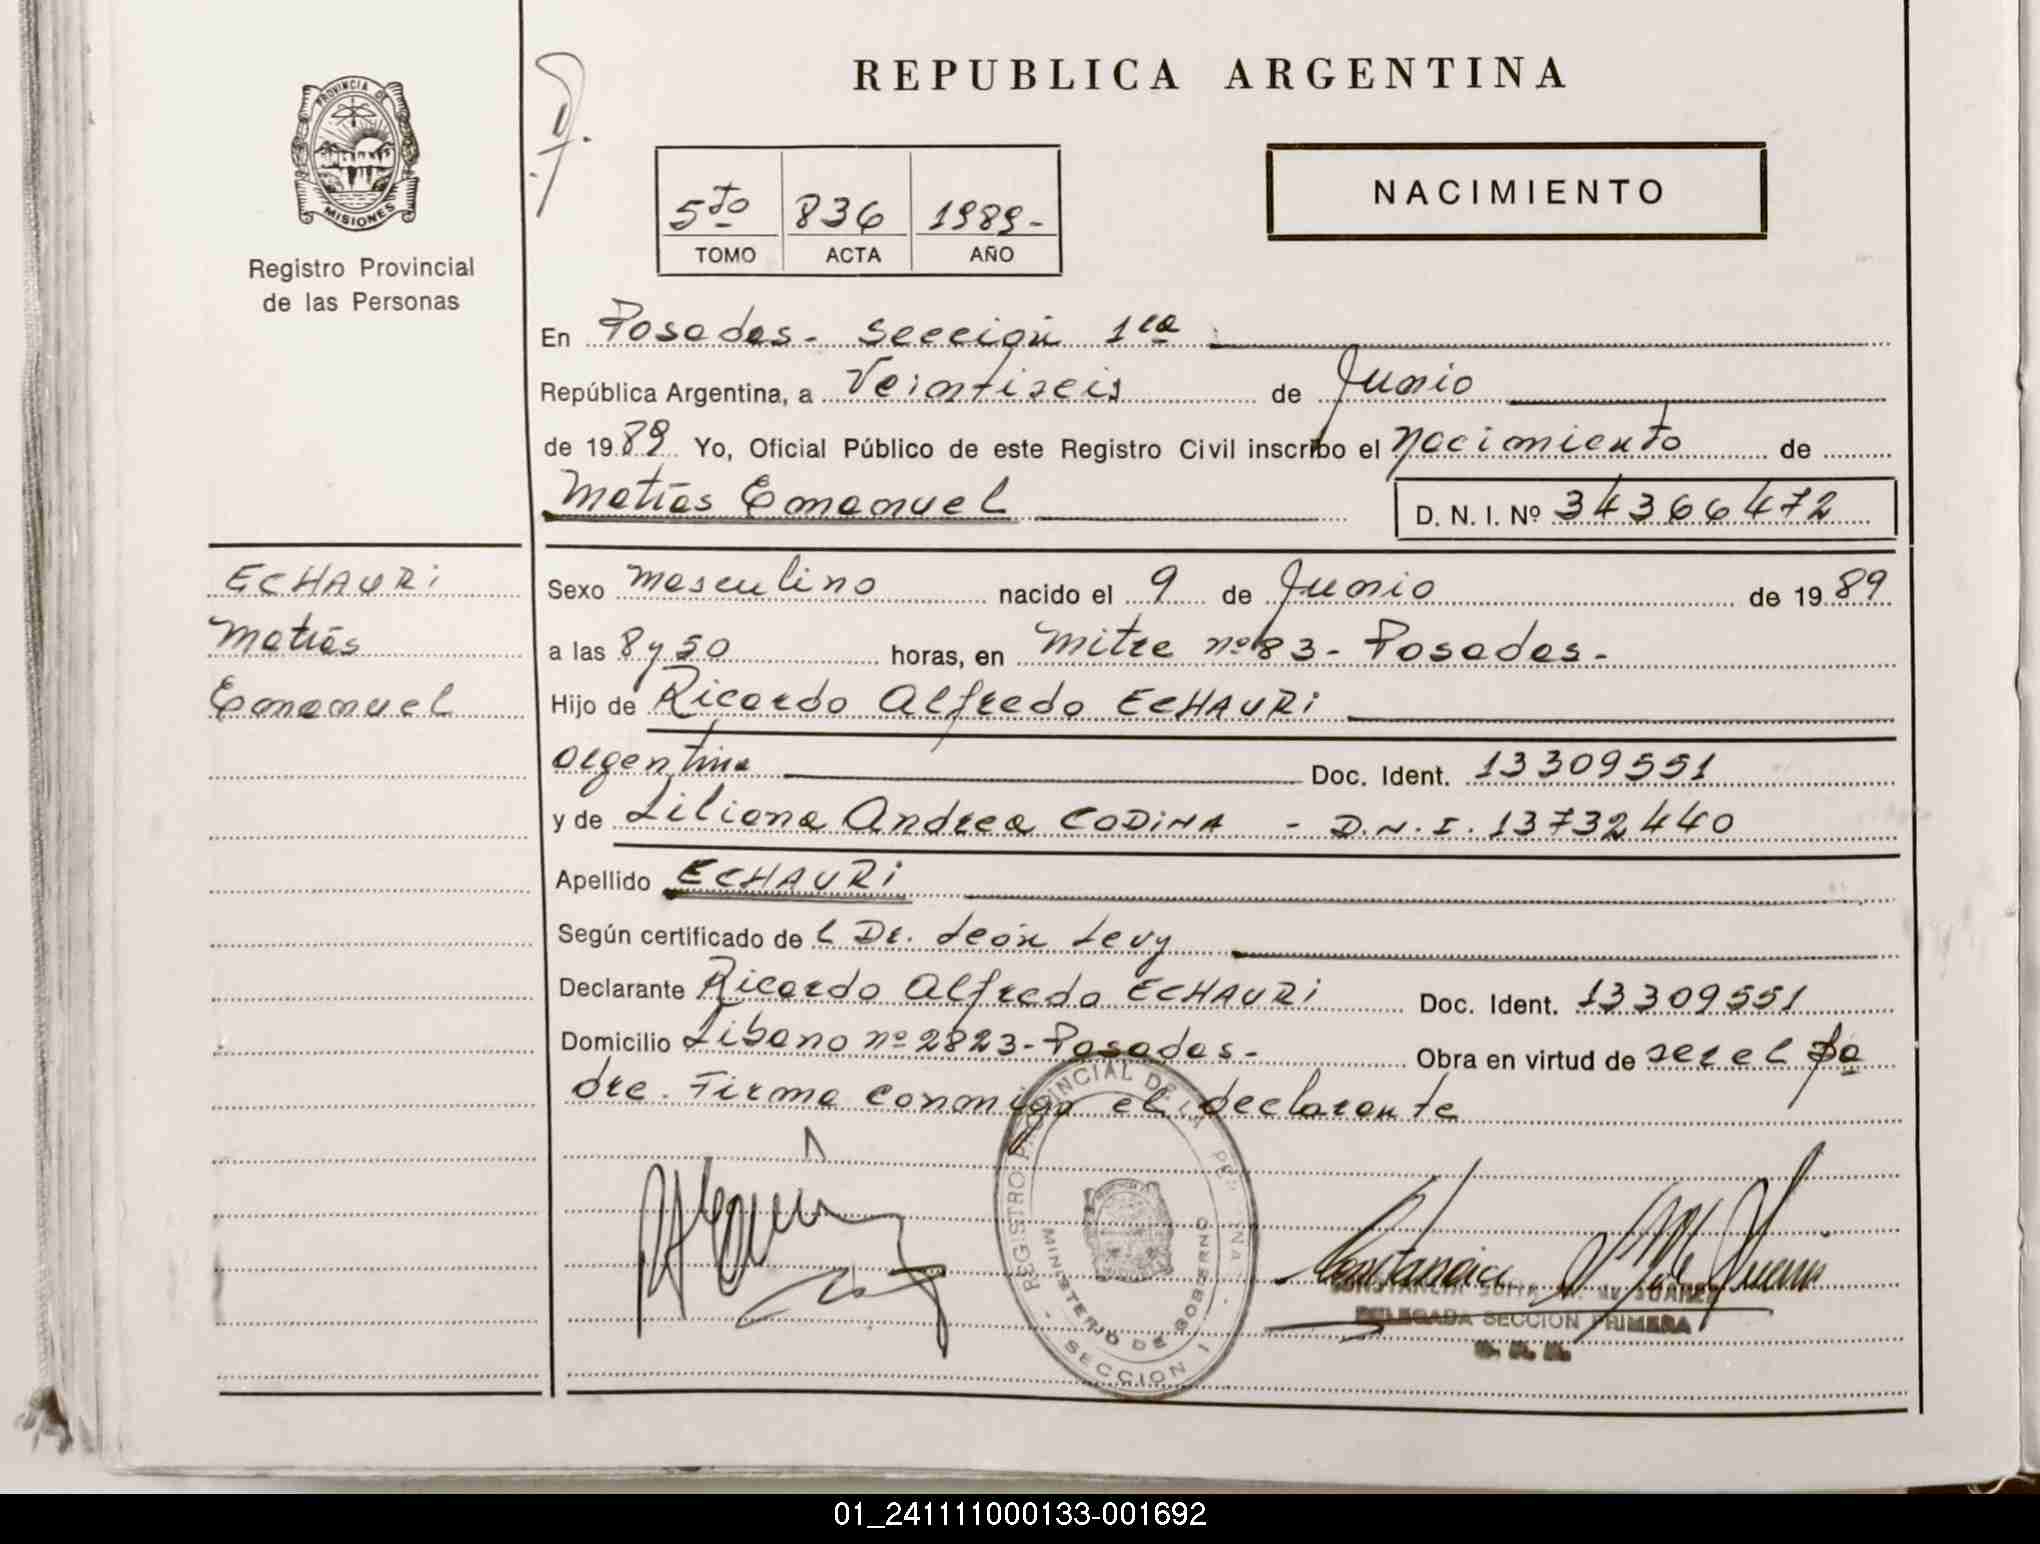 REPUBLICA ARGENTINA
PROVINCIA DE
MISIONES
Registro Provincial
de las Personas
NACIMIENTO
5to 836 1989-
TOMO ACTA AÑO
En Posadas - Sección 1ra
República Argentina, a Veintiseis de Junio
de 1989 Yo, Oficial Público de este Registro Civil inscribo el Nacimiento de
Matías Emanuel D. N. I. Nº 34366472
ECHAURi
Matías
Emanuel
Sexo Masculino nacido el 9 de Junio de 1989
a las 8 y 50 horas, en Mitre nº 83 - Posadas -
Hijo de Ricardo Alfredo ECHAURi
argentino Doc. Ident. 13309551
y de Liliana Andrea CODiNA - D.N.I. 13732440
Apellido ECHAURi
Según certificado de l Dr. León Levy
Declarante Ricardo Alfredo ECHAURi Doc. Ident. 13309551
Domicilio Libano nº 2823 - Posadas - Obra en virtud de ser el pa
dre. Firma conmigo el declarante
REGISTRO PROVINCIAL DE LAS PERSONAS
MINISTERIO DE GOBIERNO
- SECCION 1 -
DELEGADA SECCION PRIMERA
01_241111000133-001692